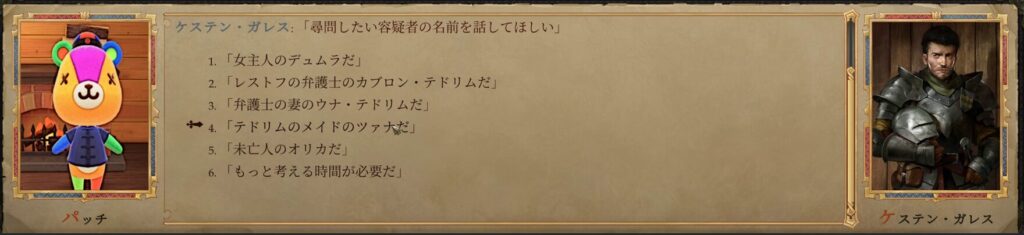 ケステン・ガレス:「尋問したい容疑者の名前を話してほしい」
1. 「女主人のデュムラだ」
2. 「レストフの弁護士のカブロン・テドリムだ」
3. 「弁護士の妻のウナ・テドリムだ」
4. 「テドリムのメイドのツァナだ」
5. 「未亡人のオリカだ」
6. 「もっと考える時間が必要だ」
パッチ
ケステン・ガレス